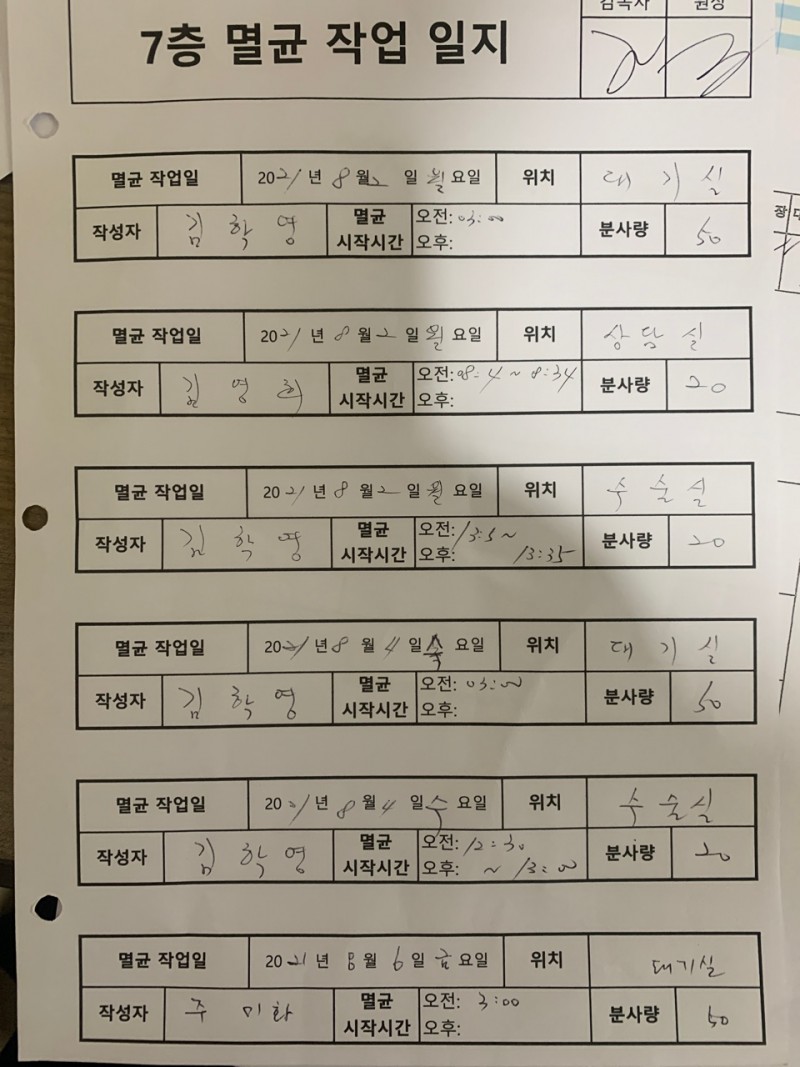 7층 멸균 작업 일지
감독자 원장
멸균 작업일 2021년 8월 2일 월요일 위치 대기실
작성자 김학영 멸균 시작시간 오전: 03:00 오후: 분사량 50
멸균 작업일 2021년 8월 2일 월요일 위치 상담실
작성자 김영희 멸균 시작시간 오전: 08:4~8:34 오후: 분사량 20
멸균 작업일 2021년 8월 2일 월요일 위치 수술실
작성자 김학영 멸균 시작시간 오전: 13:5~ 오후: 13:35 분사량 20
멸균 작업일 2021년 8월 4일 수요일 위치 대기실
작성자 김학영 멸균 시작시간 오전: 03:00 오후: 분사량 50
멸균 작업일 2021년 8월 4일 수요일 위치 수술실
작성자 김학영 멸균 시작시간 오전: 12:30 오후: ~13:00 분사량 20
멸균 작업일 2021년 8월 6일 금요일 위치 대기실
작성자 주미화 멸균 시작시간 오전: 3:00 오후: 분사량 50